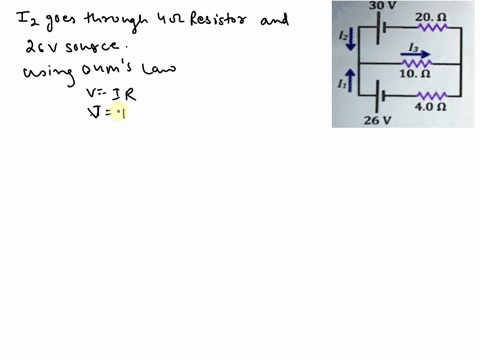 I₂ goes through 4Ω Resistor and
26V source.
using ohm's Law
V = IR
V =
30 V
20. Ω
I₂
I₃
10. Ω
I₁
4.0 Ω
26 V